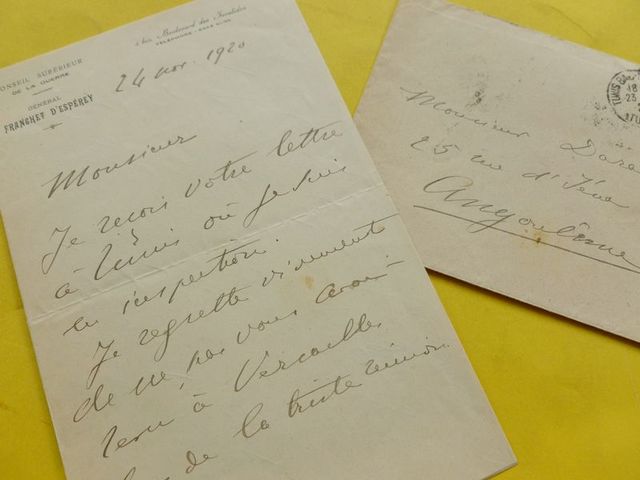 Boulevard des Invalides
CONSEIL SUPÉRIEUR
DE LA GUERRE
GÉNÉRAL
FRANCHET D'ESPÉREY
24 nov. 1920
Monsieur
Je reçois votre lettre
à Tunis où je suis
en inspection.
Je regrette vivement
de ne pas vous avoir
à Versailles
de la triste réunion
TUNIS
18
23
Monsieur
25 rue d'Iéna
Angoulême